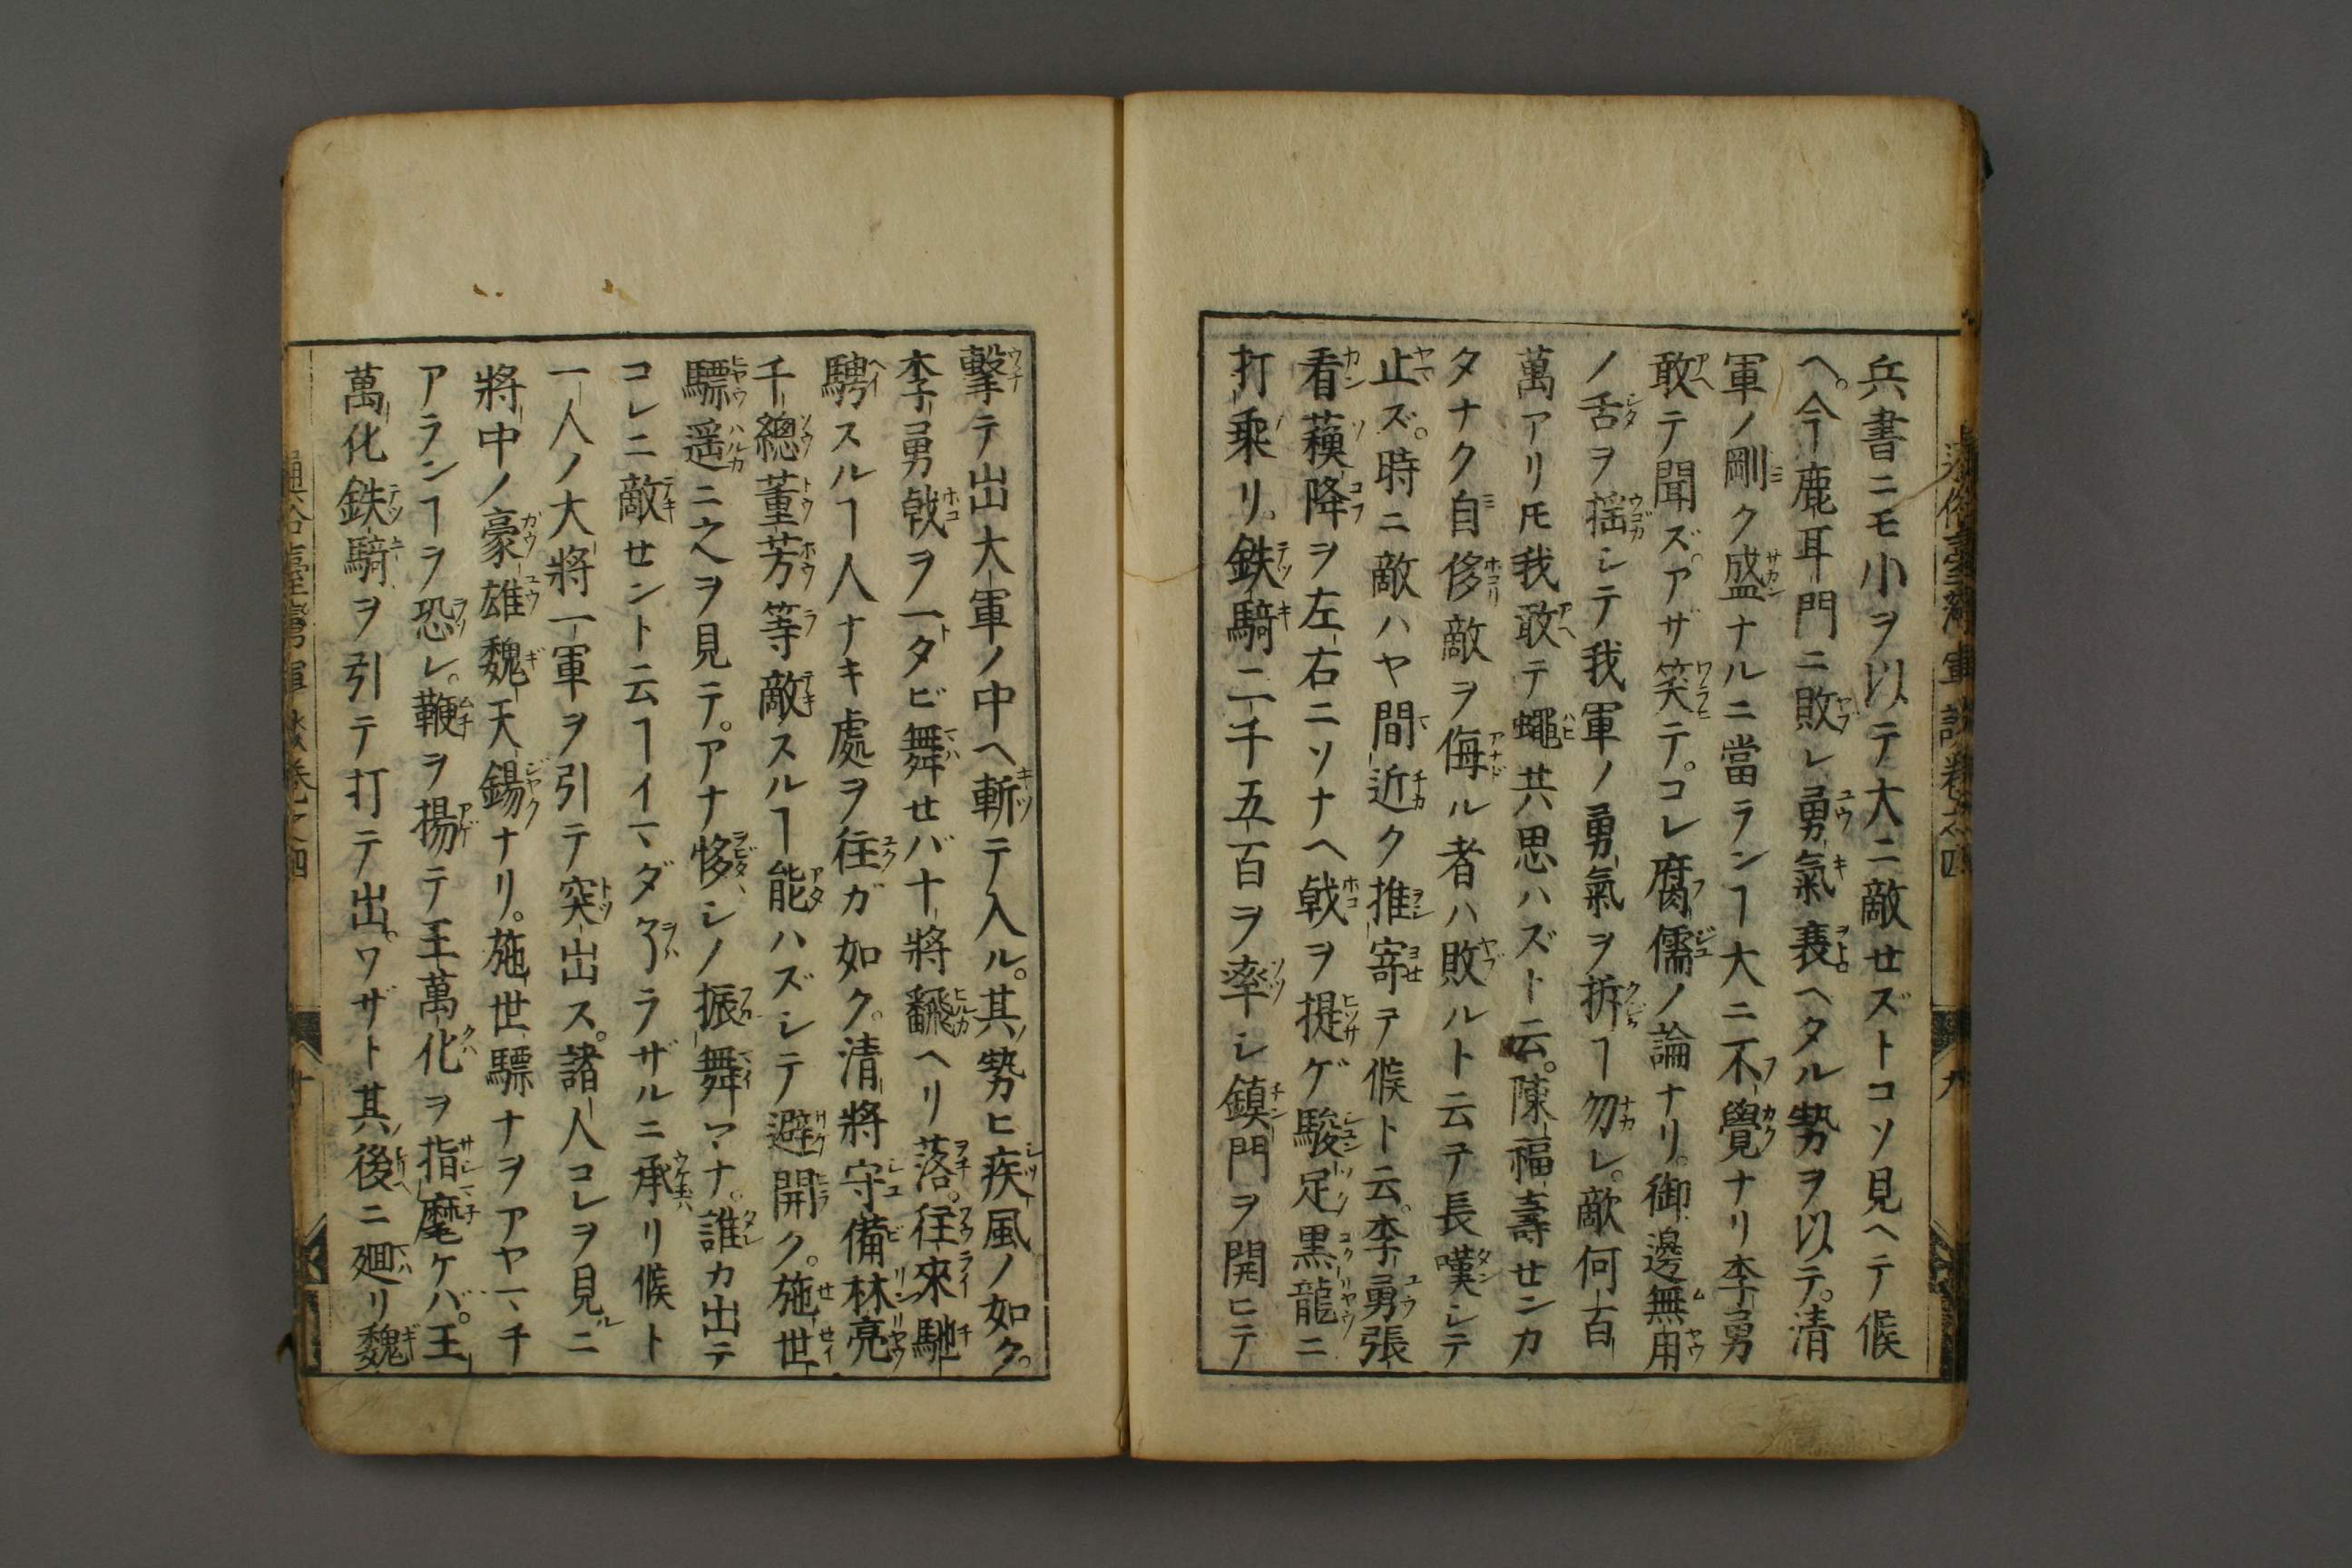 兵書ニモ小ヲ以テ大ニ敵セズトコソ見ヘテ候
ヘ。今鹿耳門ニ敗レ勇氣衰ヘタル勢ヲ以テ。清
軍ノ剛ク盛ナルニ當ランヿ大ニ不覺ナリ李勇
敢テ聞ズ。アザ笑テ。コレ腐儒ノ論ナリ。御邊無用
ノ舌ヲ揺シテ我軍ノ勇氣ヲ折ヿ勿レ。敵何百
萬アリ𪜈我敢テ蠅共思ハズト云。陳福壽センカ
タナク自侈敵ヲ侮ル者ハ敗ルト云テ長嘆シテ
止ズ。時ニ敵ハヤ間近ク推寄テ候ト云。李勇張
看蘓降ヲ左右ニソナヘ戟ヲ提ゲ駿足黒龍ニ
打乘リ。鉄騎二千五百ヲ率シ鎮門ヲ開ヒテ
九
撃テ出大軍ノ中ヘ斬テ入ル。其勢ヒ疾風ノ如ク。
李勇戟ヲ一タビ舞セバ十將飜ヘリ落。往來馳
騁スルヿ人ナキ處ヲ往ガ如ク。清將守備林亮
千總董芳等敵スルヿ能ハズシテ避開ク。施世
驃遥ニ之ヲ見テ。アナ恀シノ振舞ヤナ。誰カ出テ
コレニ敵セント云ヿイマダ了ラザルニ承リ候ト
一人ノ大將一軍ヲ引テ突出ス。諸人コレヲ見ルニ
將中ノ豪雄魏天錫ナリ。施世驃ナヲアヤマチ
アランヿヲ恐レ。鞭ヲ揚テ王萬化ヲ指麾ケバ。王
萬化鉄騎ヲ引テ打テ出。ワザト其後ニ廻リ魏
通俗臺灣軍談卷之四
十